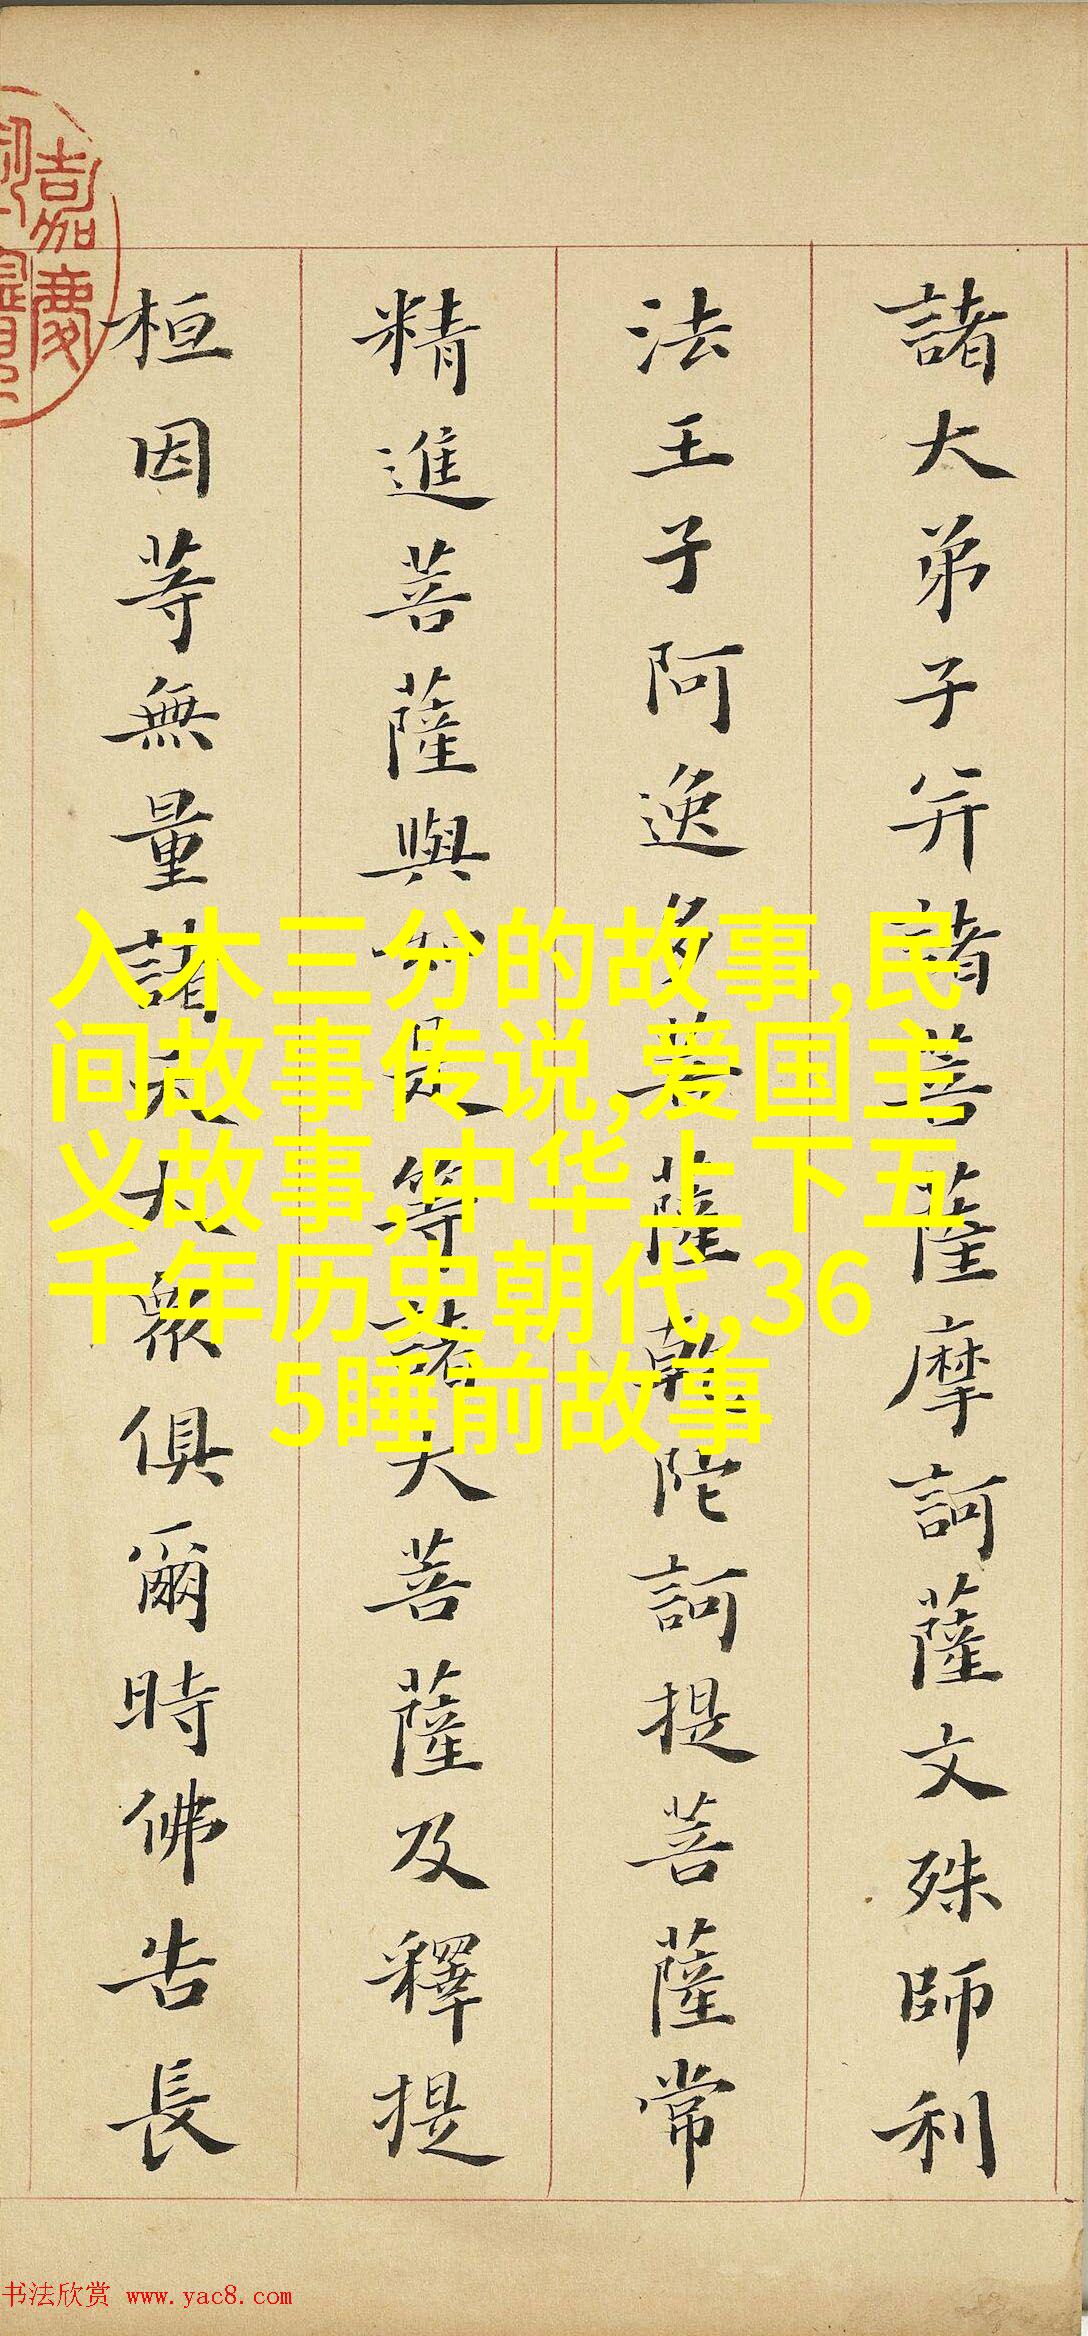 諸大弟子并諸菩薩摩訶薩文殊師利
法王子阿逸多菩薩乾陀訶提菩薩常
精進菩薩與如是等諸大菩薩及釋提
桓因等無量諸天大眾俱爾時佛告長
嘉慶
入木三分的故事,民
间故事传说,爱国主
义故事,中华上下五
千年历史朝代,36
5睡前故事
书法欣赏 www.yac8.com